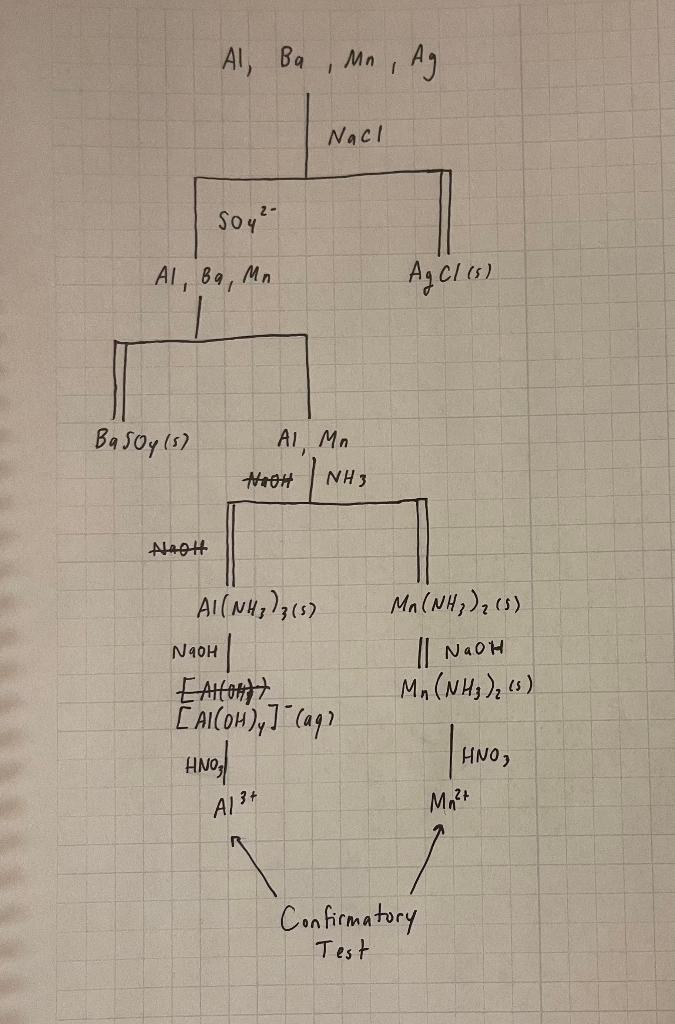 Al, Ba, Mn, Ag
NaCl
SO4 2-
Al, Ba, Mn
AgCl(s)
BaSO4(s)
Al, Mn
NaOH NH3
NaOH
Al(NH3)3(s)
Mn(NH3)2(s)
NaOH
NaOH
[Al(OH)
Mn(NH3)2(s)
[Al(OH)4]-(aq)
HNO3
HNO3
Al3+
Mn2+
Confirmatory
Test